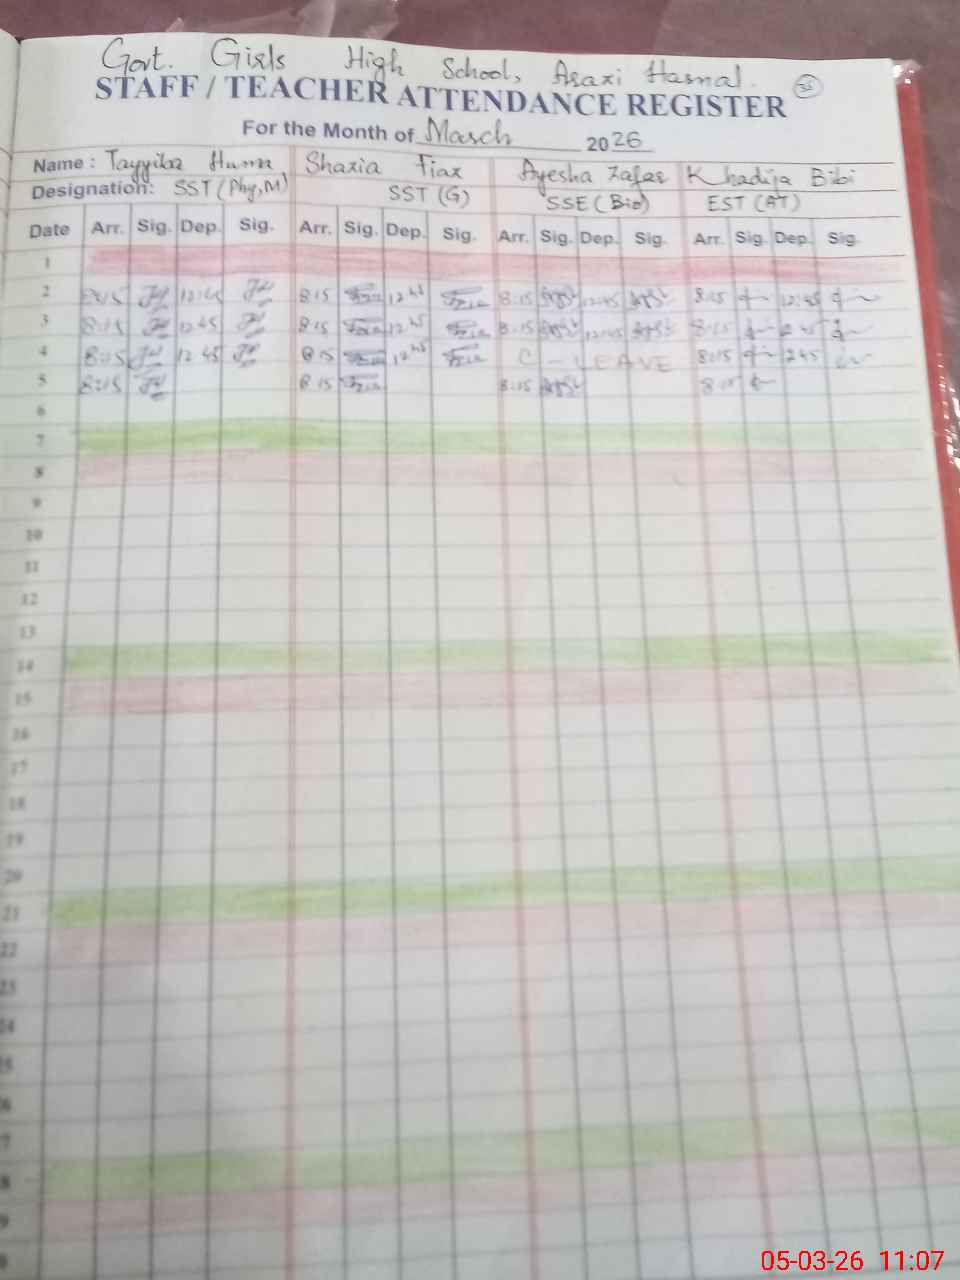 Govt. Girls High School, Asari Harnal.
35
STAFF / TEACHER ATTENDANCE REGISTER
For the Month of March 2026
Name : Tayyiba Huma Shazia Fiaz Ayesha Zafar Khadija Bibi
Designation: SST (Phy,M) SST (G) SSE (Bio) EST (AT)
Date Arr. Sig. Dep. Sig. Arr. Sig. Dep. Sig. Arr. Sig. Dep. Sig. Arr. Sig. Dep. Sig.
1
2 8:15 12:45 8:15 12 45 8:15 12:45 8:15 12:45
3 8:15 12 45 8:15 12 45 8:15 12:45 8:15 2 45
4 8:15 12 45 8:15 12 45 C - LEAVE 8:15 1245
5 8:15 8:15 8:15 8:15
6
7
8
9
10
11
12
13
14
15
16
17
18
19
20
21
22
23
24
5
6
7
8
9
0
05-03-26 11:07